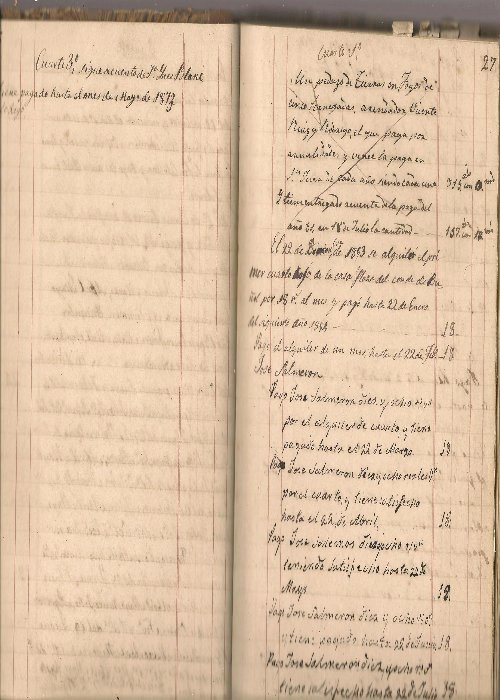 Cuarto 3º sigue acuenta de Dn
tiene pagado hasta el mes de Mayo de 1873
Cuarto 1º
27
Un pedazo de tierras en Pozos de
arrendador Vicente
Ruiz y Hidalgo, el que paga por
anualidades, y vence la paga en
de cada año, siendo cada una
313
Tiene entregado acuenta de la paga del
año 81, en 18 de Julio la cantidad
157
El 22 de 1883 se alquiló el pri
mer cuarto bajo de la casa plaza del conde de Bu
ñol por 18 r. al mes y pagó hasta 22 de Enero
del siguiente año 1884 — 18.
Pagó el alquiler de un mes hasta el 22 de Feb. 18
José Salmeron
Pago José Salmeron diez y ocho
por el alquiler de cuarto y tiene
pagado hasta el 22 de Marzo. 18.
Pago José Salmeron diez y ocho reales
por el cuarto, y tiene satisfecho
hasta el 22, de Abril, 18.
Pago José diez y ocho
teniendo satisfecho hasta 22 de
Mayo 18.
Pago José Salmeron diez y ocho
y tiene pagado hasta 22 de Junio 18.
Pago José Salmeron diez y ocho
tiene satisfecho hasta 22 de Julio 18.